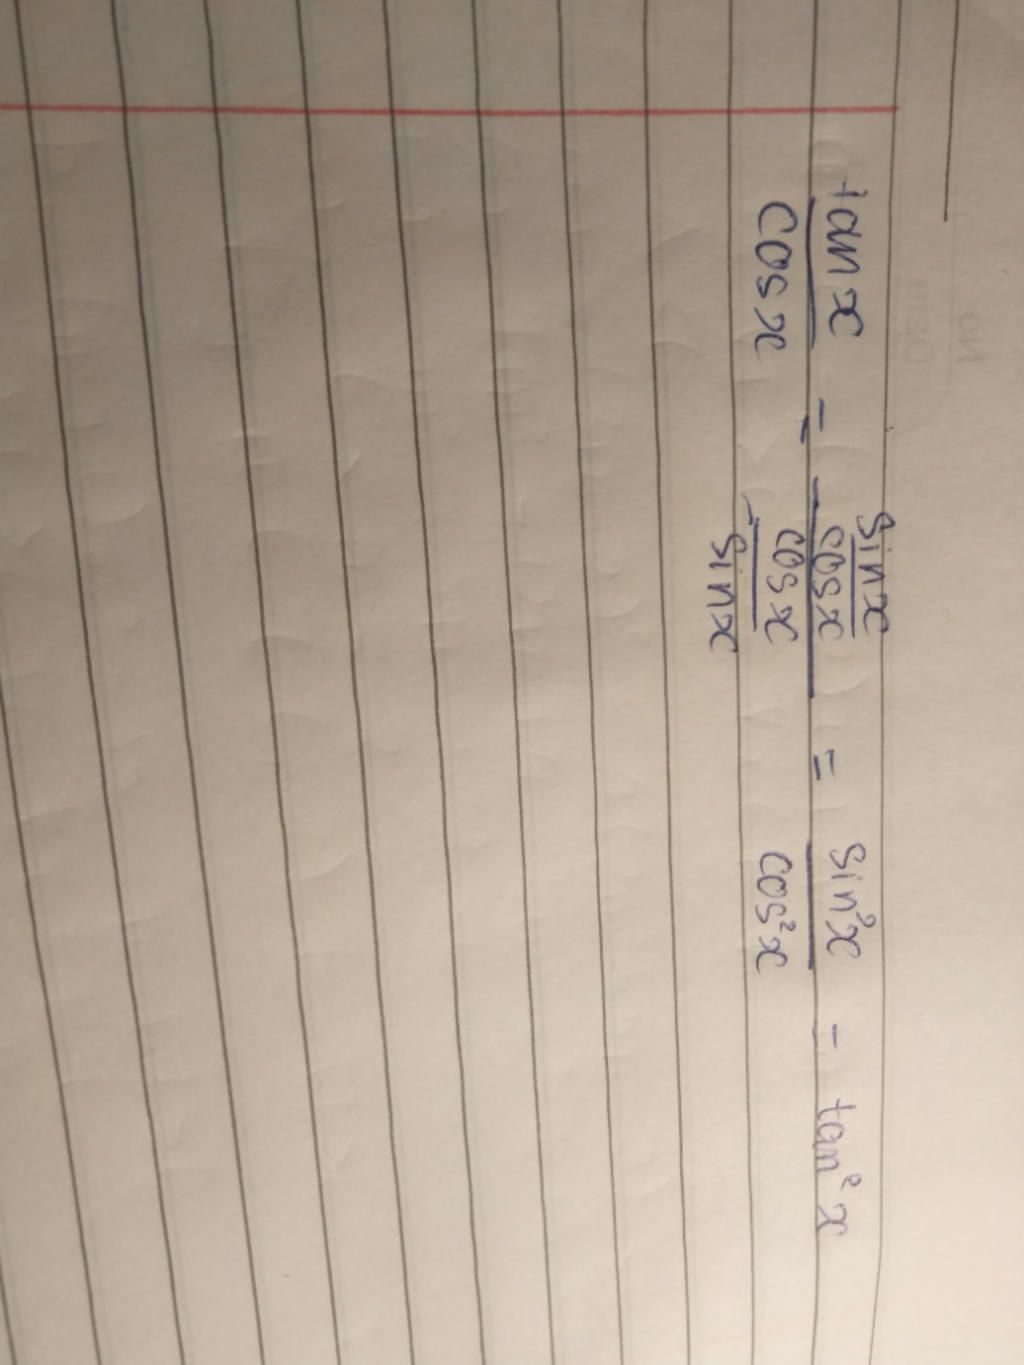 tan x / cos x = (sin x / cos x) / (cos x / sin x) = sin²x / cos²x = tan²x